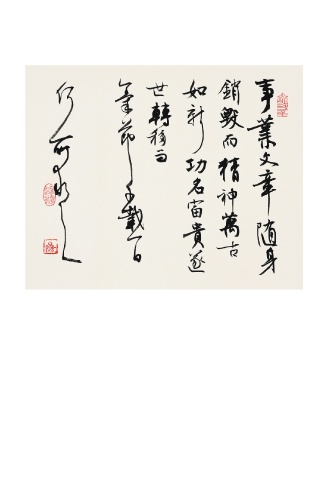 事業文章随身
銷毀而精神萬古
如新功名富貴逐
世轉移而
氣節千載一日